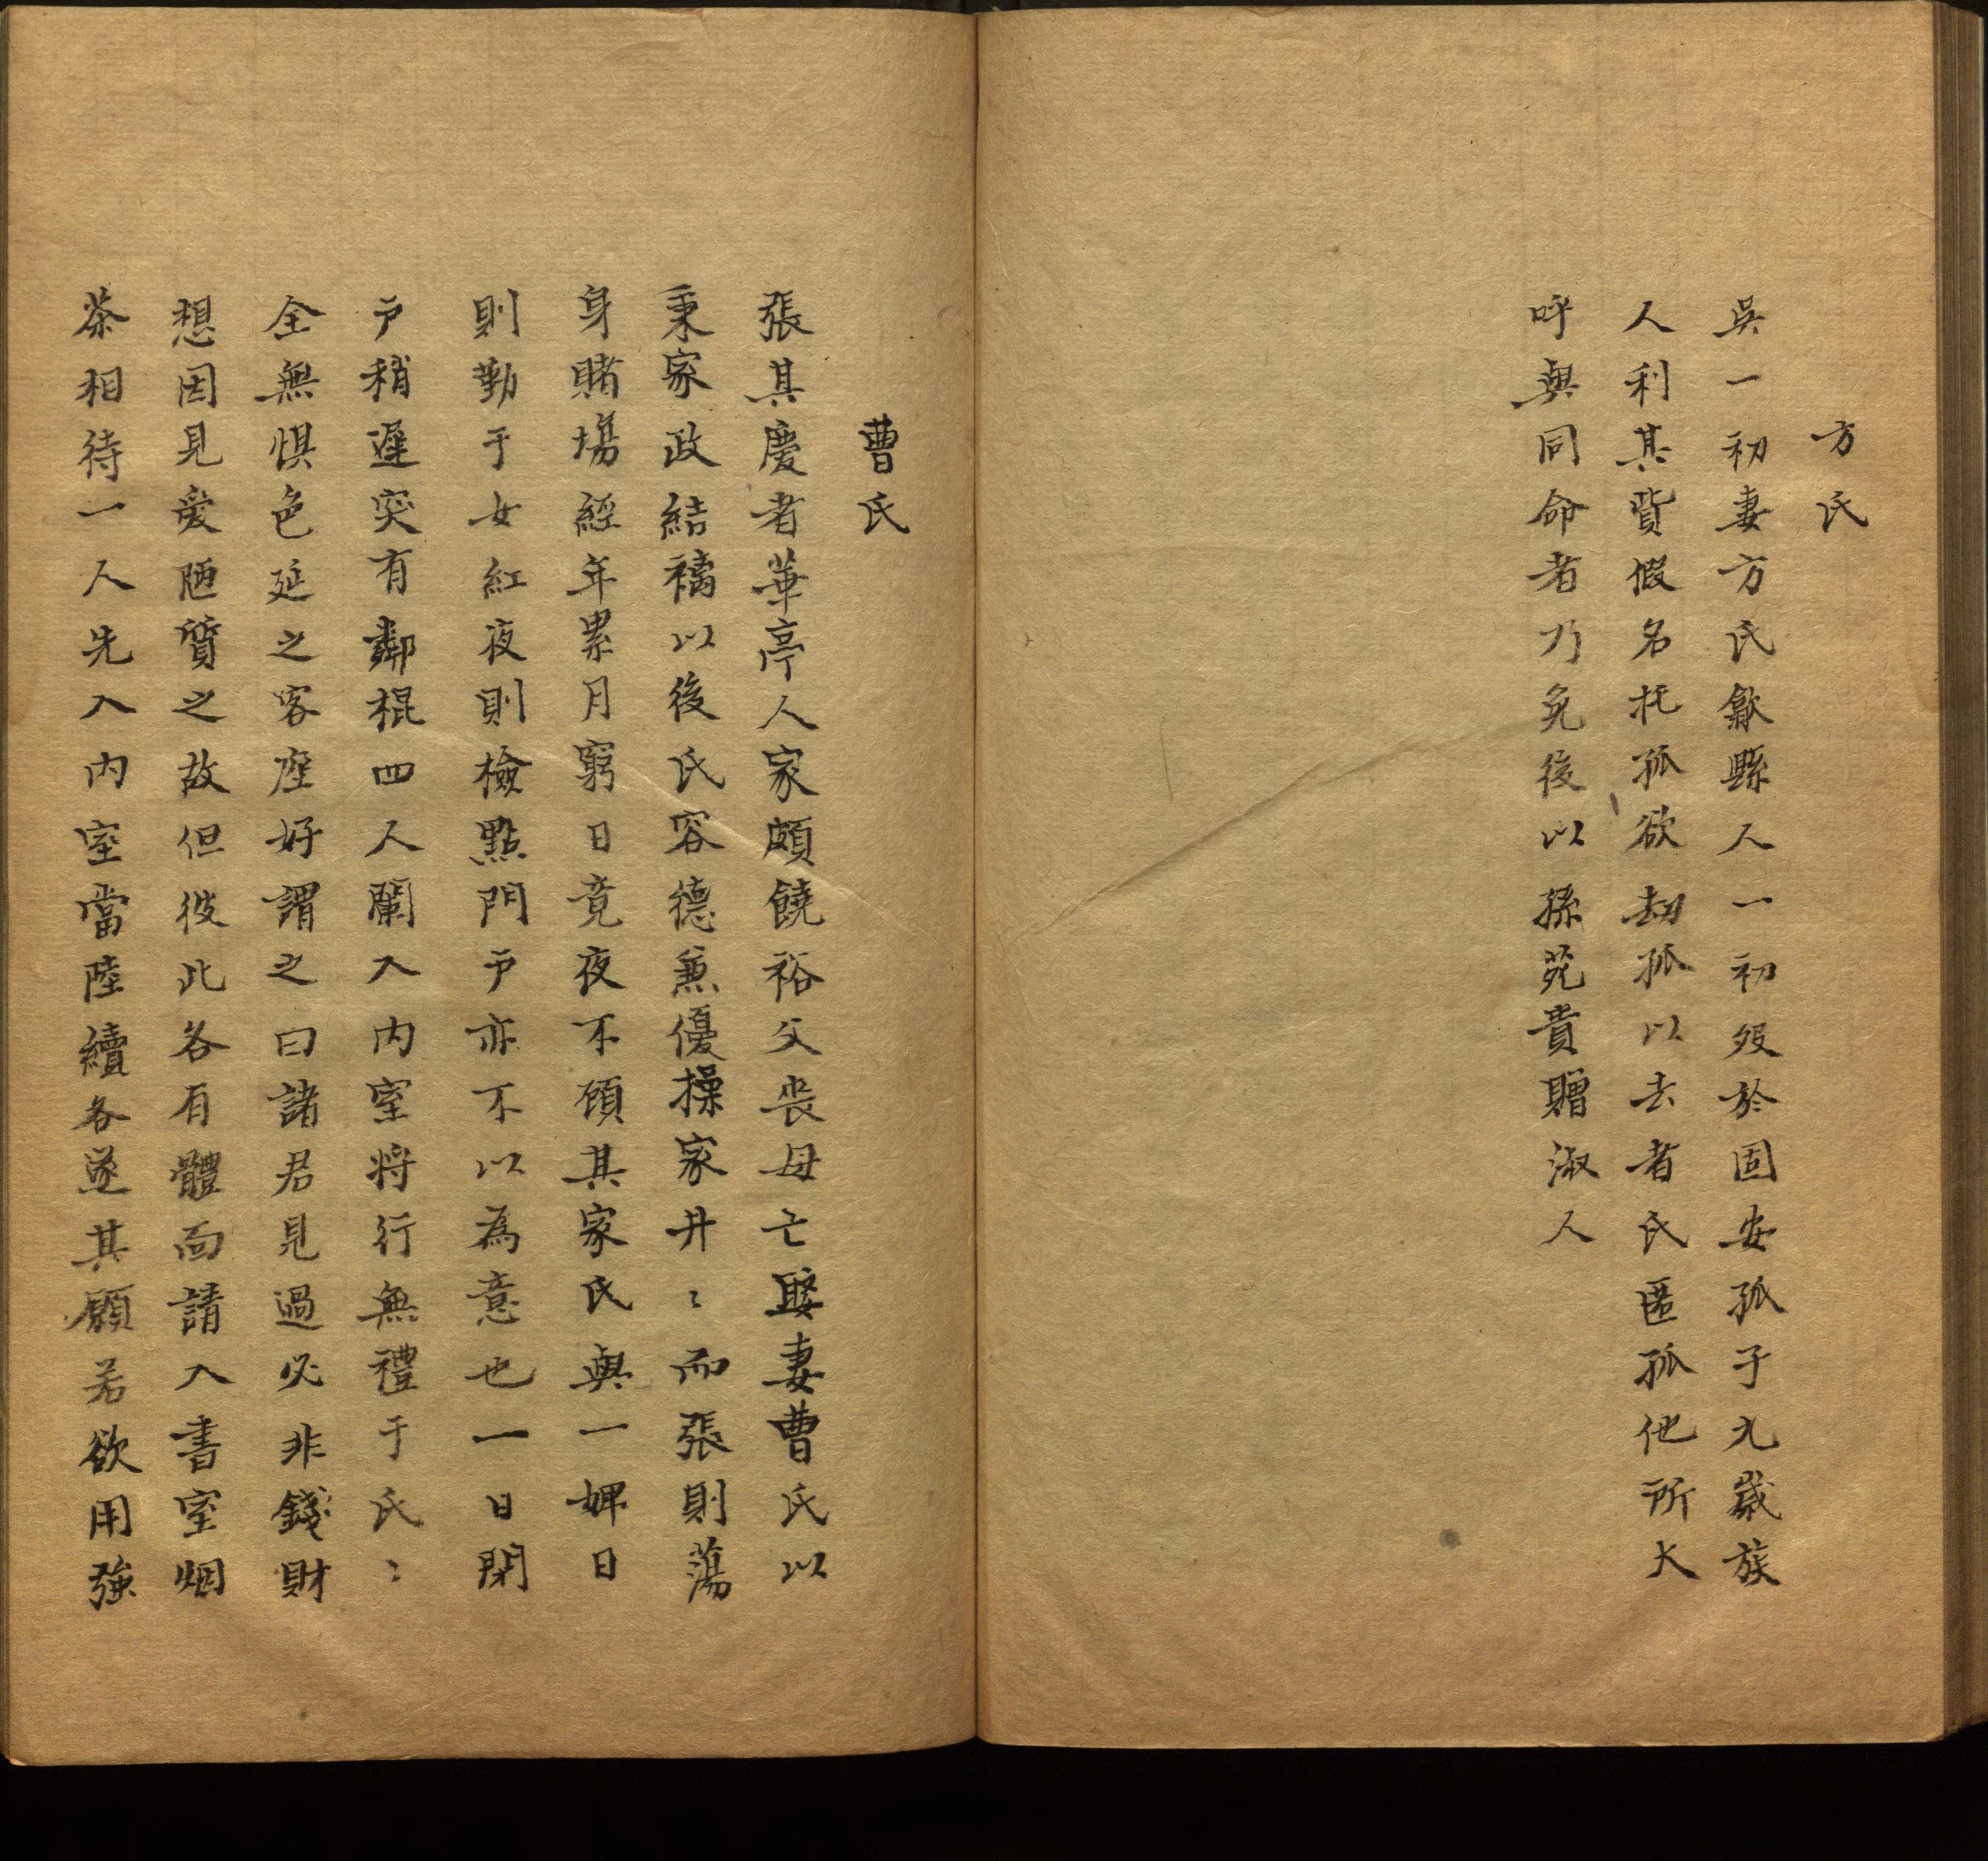 方氏
吳一初妻方氏歙縣人一初歿於固安孤子九歲族
人利其貲假名托孤欲劫孤以去者氏匿孤他所大
呼與同命者乃免後以孫苑貴贈淑人
曹氏
張其慶者華亭人家頗饒裕父喪母亡娶妻曹氏以
秉家政結褵以後氏容德兼優操家井〻而張則蕩
身賭場經年累月窮日竟夜不顧其家氏與一婢日
則勤于女紅夜則檢點門戶亦不以為意也一日閉
戶稍遲突有鄰棍四人闌入内室将行無禮于氏〻
全無惧色延之客座好謂之曰諸君見過必非錢財
想因見爱陋質之故但彼此各有體面請入書室烟
茶相待一人先入内室當陸續各遂其願若欲用強